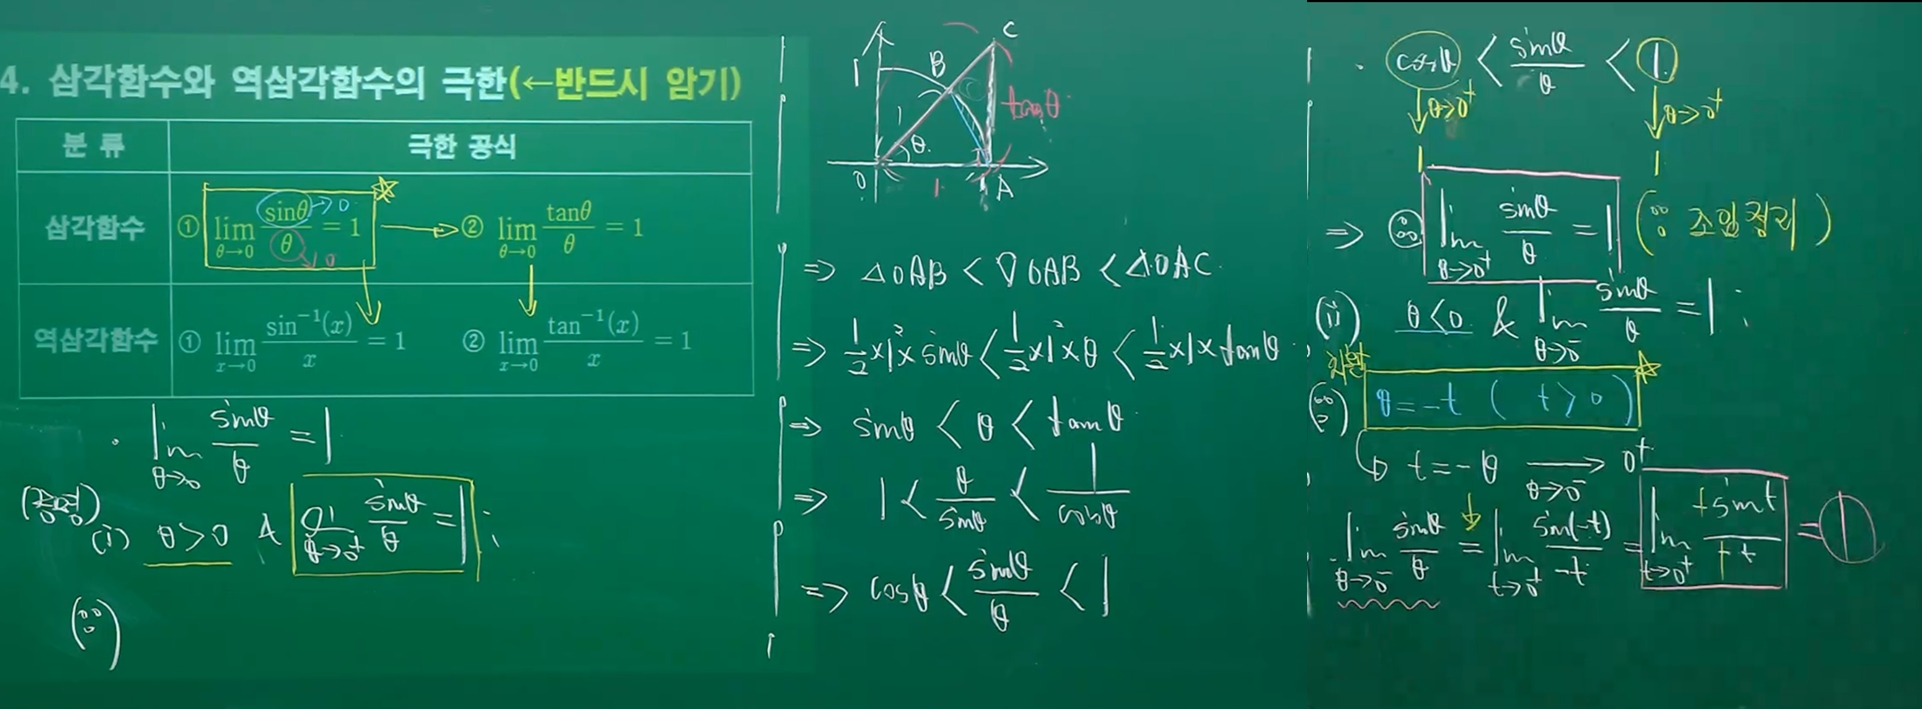 4. 삼각함수와 역삼각함수의 극한(←반드시 암기)
분 류 극한 공식
삼각함수 ① lim θ→0 sinθ/θ = 1 ② lim θ→0 tanθ/θ = 1
→0
→0
역삼각함수 ① lim x→0 sin⁻¹(x)/x = 1 ② lim x→0 tan⁻¹(x)/x = 1
· lim θ→0 sinθ/θ = 1
(i) θ>0 & lim θ→0⁺ sinθ/θ = 1 ;
(∵)
1 B C
1 θ tanθ
O 1 A
⇒ △OAB < ▽OAB < △OAC
⇒ 1/2×1²×sinθ < 1/2×1²×θ < 1/2×1×tanθ
⇒ sinθ < θ < tanθ
⇒ 1 < θ/sinθ < 1/cosθ
⇒ cosθ < sinθ/θ < 1
· cosθ < sinθ/θ < 1
↓θ→0⁺ ↓θ→0⁺
1 1
⇒ ∴ lim θ→0⁺ sinθ/θ = 1 (∵ 조임정리)
(ii) θ<0 & lim θ→0⁻ sinθ/θ = 1 ;
치환
(∵) θ=-t ( t>0 )
t=-θ → 0⁺
θ→0⁻
lim θ→0⁻ sinθ/θ = lim t→0⁺ sin(-t)/-t = lim t→0⁺ +sint/+t = 1